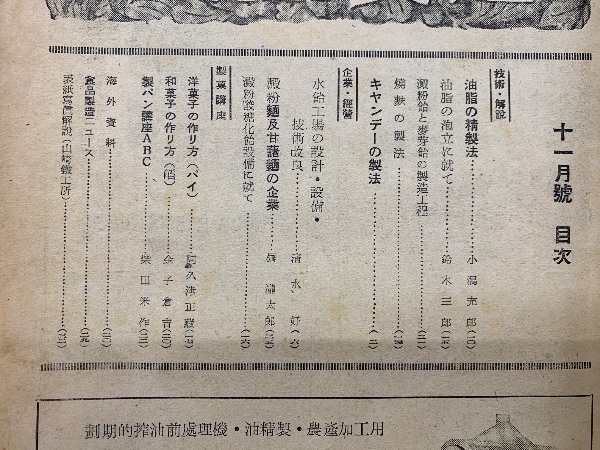 十一月號 目次
技術・解説
油脂の精製法……小瀉充郎(一〇)
油脂の泡立に就て……鈴木三郎(一五)
澱粉飴と麥芽飴の製造工程……(三)
燒麩の製法……
キヤンデーの製法……(一)
企業・經營
水飴工場の設計・設備・
技術改良……清水 好(六)
澱粉麺及甘藷麺の企業……瀧太郎
澱粉酸糖化飴設備に就て……(一六)
製菓講座
洋菓子の作り方(パイ)……阿久津正藏
和菓子の作り方……金子倉吉(三〇)
製パン講座ABC……柴田米作(三三)
海外資料……(三〇)
食品製造ニュース……(二九)
表紙寫眞解説(山崎鐵工所)……(三三)
劃期的搾油前處理機・油精製・農產加工用